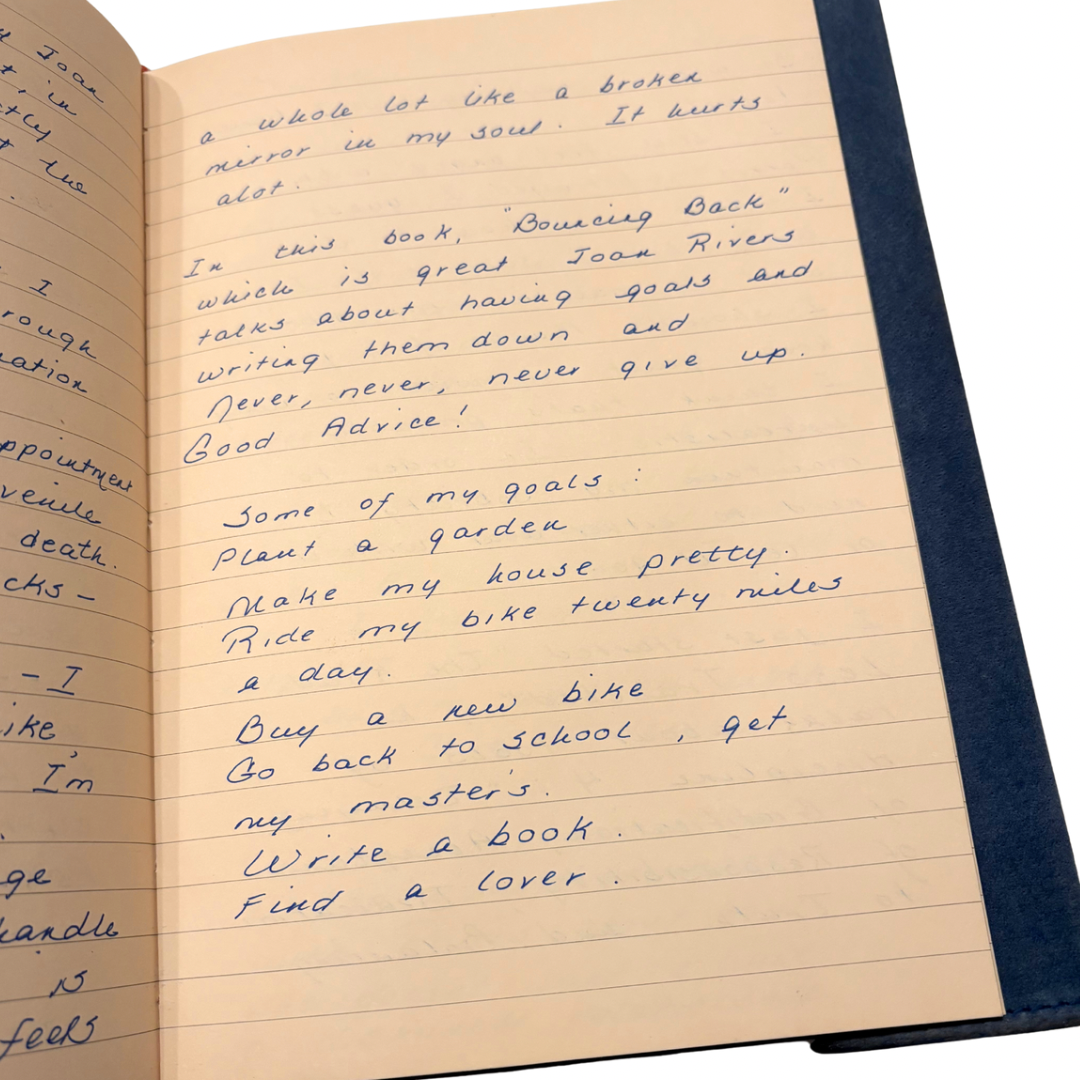 Joan
t, in
ctly
t the
I
rough
ation
ppointment
venile
death.
cks –
– I
ike
I'm
ge
handle
is
feels
a whole lot like a broken
mirror in my soul. It hurts
alot.
In this book, "Bouncing Back"
which is great Joan Rivers
talks about having goals and
writing them down and
Never, never, never give up.
Good Advice!
Some of my goals:
Plant a garden
Make my house pretty.
Ride my bike twenty miles
a day.
Buy a new bike
Go back to school, get
my master's.
Write a book.
Find a lover.